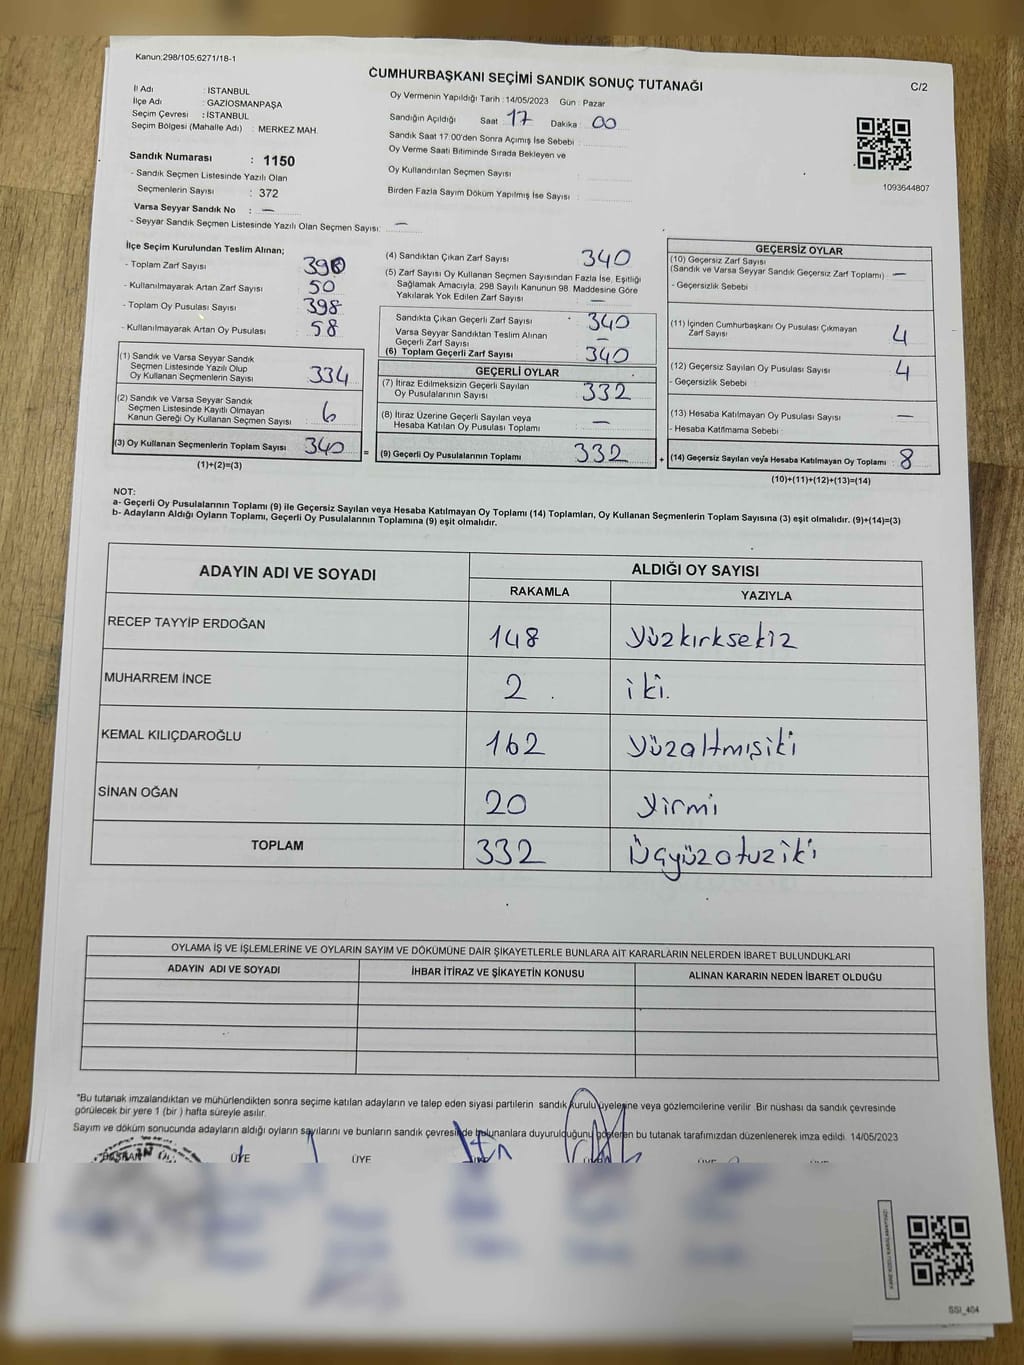 Kanun:298/105;6271/18-1
CUMHURBAŞKANI SEÇİMİ SANDIK SONUÇ TUTANAĞI
C/2
İl Adı : İSTANBUL
İlçe Adı : GAZİOSMANPAŞA
Seçim Çevresi : İSTANBUL
Seçim Bölgesi (Mahalle Adı) : MERKEZ MAH.
Oy Vermenin Yapıldığı Tarih : 14/05/2023 Gün : Pazar
Sandığın Açıldığı Saat : 17 Dakika : 00
Sandık Saat 17:00'den Sonra Açılmış İse Sebebi :
Oy Verme Saati Bitiminde Sırada Bekleyen ve
Oy Kullandırılan Seçmen Sayısı :
Birden Fazla Sayım Döküm Yapılmış İse Sayısı :
1093644807
Sandık Numarası : 1150
- Sandık Seçmen Listesinde Yazılı Olan
Seçmenlerin Sayısı : 372
Varsa Seyyar Sandık No : —
- Seyyar Sandık Seçmen Listesinde Yazılı Olan Seçmen Sayısı: —
İlçe Seçim Kurulundan Teslim Alınan;
- Toplam Zarf Sayısı : 390
- Kullanılmayarak Artan Zarf Sayısı : 50
- Toplam Oy Pusulası Sayısı : 398
- Kullanılmayarak Artan Oy Pusulası : 58
(1) Sandık ve Varsa Seyyar Sandık
Seçmen Listesinde Yazılı Olup
Oy Kullanan Seçmenlerin Sayısı : 334
(2) Sandık ve Varsa Seyyar Sandık
Seçmen Listesinde Kayıtlı Olmayan
Kanun Gereği Oy Kullanan Seçmen Sayısı : 6
(3) Oy Kullanan Seçmenlerin Toplam Sayısı : 340
(1)+(2)=(3)
=
(4) Sandıktan Çıkan Zarf Sayısı : 340
(5) Zarf Sayısı Oy Kullanan Seçmen Sayısından Fazla İse, Eşitliği
Sağlamak Amacıyla, 298 Sayılı Kanunun 98. Maddesine Göre
Yakılarak Yok Edilen Zarf Sayısı : —
Sandıkta Çıkan Geçerli Zarf Sayısı : 340
Varsa Seyyar Sandıktan Teslim Alınan
Geçerli Zarf Sayısı : —
(6) Toplam Geçerli Zarf Sayısı : 340
GEÇERLİ OYLAR
(7) İtiraz Edilmeksizin Geçerli Sayılan
Oy Pusulalarının Sayısı : 332
(8) İtiraz Üzerine Geçerli Sayılan veya
Hesaba Katılan Oy Pusulası Toplamı : —
(9) Geçerli Oy Pusulalarının Toplamı : 332
+
GEÇERSİZ OYLAR
(10) Geçersiz Zarf Sayısı
(Sandık ve Varsa Seyyar Sandık Geçersiz Zarf Toplamı) : —
- Geçersizlik Sebebi
(11) İçinden Cumhurbaşkanı Oy Pusulası Çıkmayan
Zarf Sayısı : 4
(12) Geçersiz Sayılan Oy Pusulası Sayısı : 4
- Geçersizlik Sebebi
(13) Hesaba Katılmayan Oy Pusulası Sayısı : —
- Hesaba Katılmama Sebebi :
(14) Geçersiz Sayılan veya Hesaba Katılmayan Oy Toplamı : 8
(10)+(11)+(12)+(13)=(14)
NOT:
a- Geçerli Oy Pusulalarının Toplamı (9) ile Geçersiz Sayılan veya Hesaba Katılmayan Oy Toplamı (14) Toplamları, Oy Kullanan Seçmenlerin Toplam Sayısına (3) eşit olmalıdır. (9)+(14)=(3)
b- Adayların Aldığı Oyların Toplamı, Geçerli Oy Pusulalarının Toplamına (9) eşit olmalıdır.
ADAYIN ADI VE SOYADI
ALDIĞI OY SAYISI
RAKAMLA YAZIYLA
RECEP TAYYİP ERDOĞAN 148 Yüzkırksekiz
MUHARREM İNCE 2 iki.
KEMAL KILIÇDAROĞLU 162 Yüzaltmışiki
SİNAN OĞAN 20 Yirmi
TOPLAM 332 Üçyüzotuziki
OYLAMA İŞ VE İŞLEMLERİNE VE OYLARIN SAYIM VE DÖKÜMÜNE DAİR ŞİKAYETLERLE BUNLARA AİT KARARLARIN NELERDEN İBARET BULUNDUKLARI
ADAYIN ADI VE SOYADI İHBAR İTİRAZ VE ŞİKAYETİN KONUSU ALINAN KARARIN NEDEN İBARET OLDUĞU
*Bu tutanak imzalandıktan ve mühürlendikten sonra seçime katılan adayların ve talep eden siyasi partilerin sandık kurulu üyelerine veya gözlemcilerine verilir. Bir nüshası da sandık çevresinde
görülecek bir yere 1 (bir) hafta süreyle asılır.
Sayım ve döküm sonucunda adayların aldığı oyların sayılarını ve bunların sandık çevresinde bulunanlara duyurulduğunu gösteren bu tutanak tarafımızdan düzenlenerek imza edildi. 14/05/2023
BAŞKAN ÜYE ÜYE
SSI_404